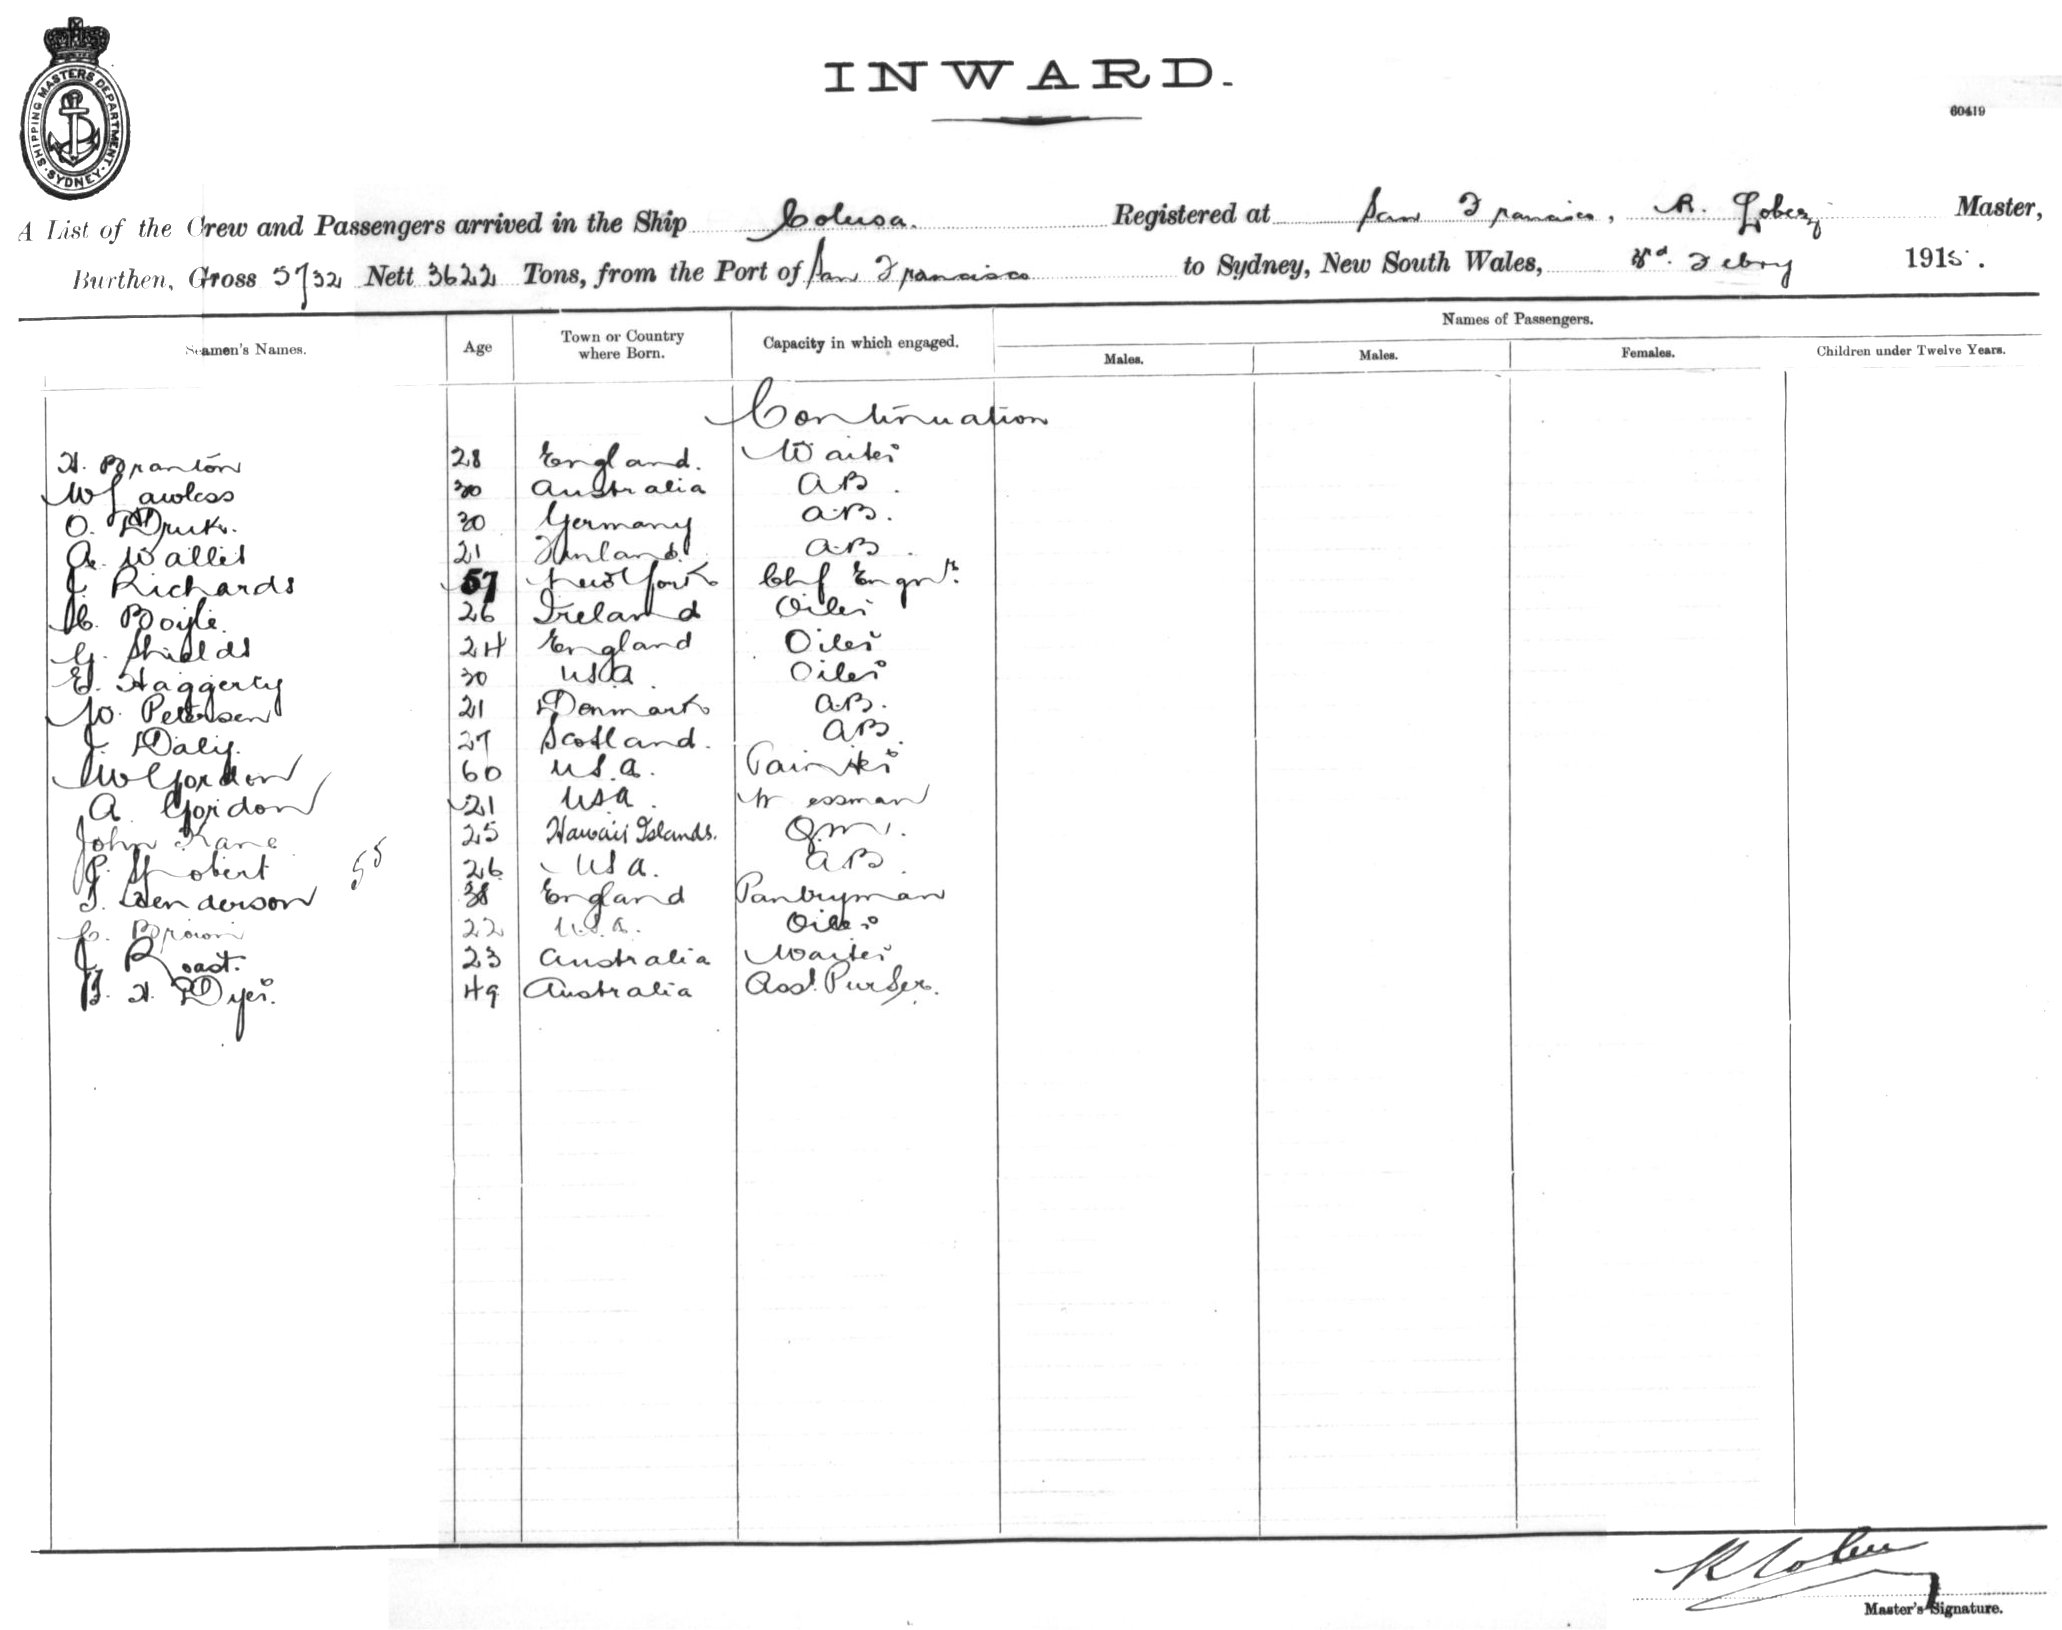 SHIPPING MASTERS DEPARTMENT · SYDNEY ·
INWARD.
60419
A List of the Crew and Passengers arrived in the Ship Colusa. Registered at San Francisco, R. Lobez Master,
Burthen, Gross 5732 Nett 3622 Tons, from the Port of San Francisco to Sydney, New South Wales, Febry 1915.
Seamen's Names. Age Town or Country where Born. Capacity in which engaged. Names of Passengers.
Males. Males. Females. Children under Twelve Years.
Continuation
H. Branton 28 England. Waiter
W Lawless 30 Australia AB.
O. Druk. 30 Germany A.B.
A. Wallis 21 Finland. A.B.
J. Richards 57 New York Chf Engnr.
C. Boyle. 26 Ireland Oiler
G. Shields 24 England Oiler
E. Haggerty 30 USA. Oiler
W. Petersen 21 Denmark A.B.
J. Daly. 27 Scotland. AB.
W Gordon 60 U.S.A. Painter
A. Gordon 21 USA. Messman
John Kane 25 Hawaii Islands. Q.M.
55
26 USA. A.B.
Henderson 38 England Pantryman
C. Brown 22 U.S.A. Oiler
J. Roast. 23 Australia Waiter
H. Dyer. 49 Australia Asst. Purser.
Master's Signature.